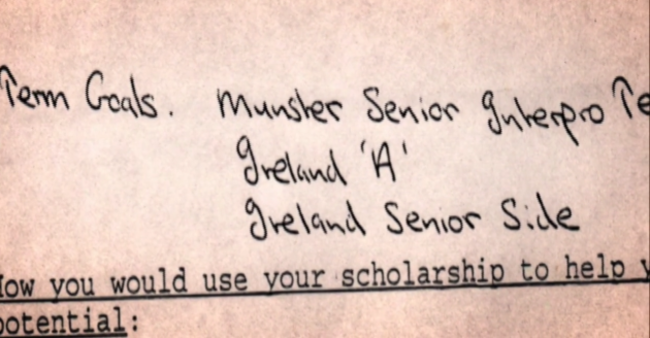 Term Goals. Munster Senior Interpro Te
Ireland 'A'
Ireland Senior Side
How you would use your scholarship to help y
potential: